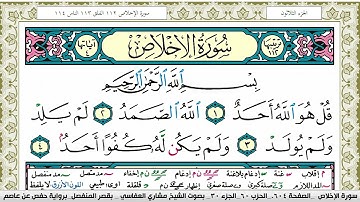 الجزء الثلاثون
سورة الإخلاص ١١٢ الفلق ١١٣ الناس ١١٤
سُورَةُ الإِخْلَاصِ
آياتها ٤
بِسْمِ ٱللَّهِ ٱلرَّحْمَٰنِ ٱلرَّحِيمِ
قُلْ هُوَ ٱللَّهُ أَحَدٌ ١ ٱللَّهُ ٱلصَّمَدُ ٢ لَمْ يَلِدْ
وَلَمْ يُولَدْ ٣ وَلَمْ يَكُن لَّهُۥ كُفُوًا أَحَدٌۢ ٤
سورة الإخلاص - الصفحة ٦٠٤ - الحزب ٦٠ - الجزء ٣٠ - بصوت الشيخ مشاري العفاسي - بقصر المنفصل - برواية حفص عن عاصم